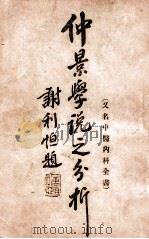 仲景學說之分析
(又名中醫內科全書)
謝利恒題